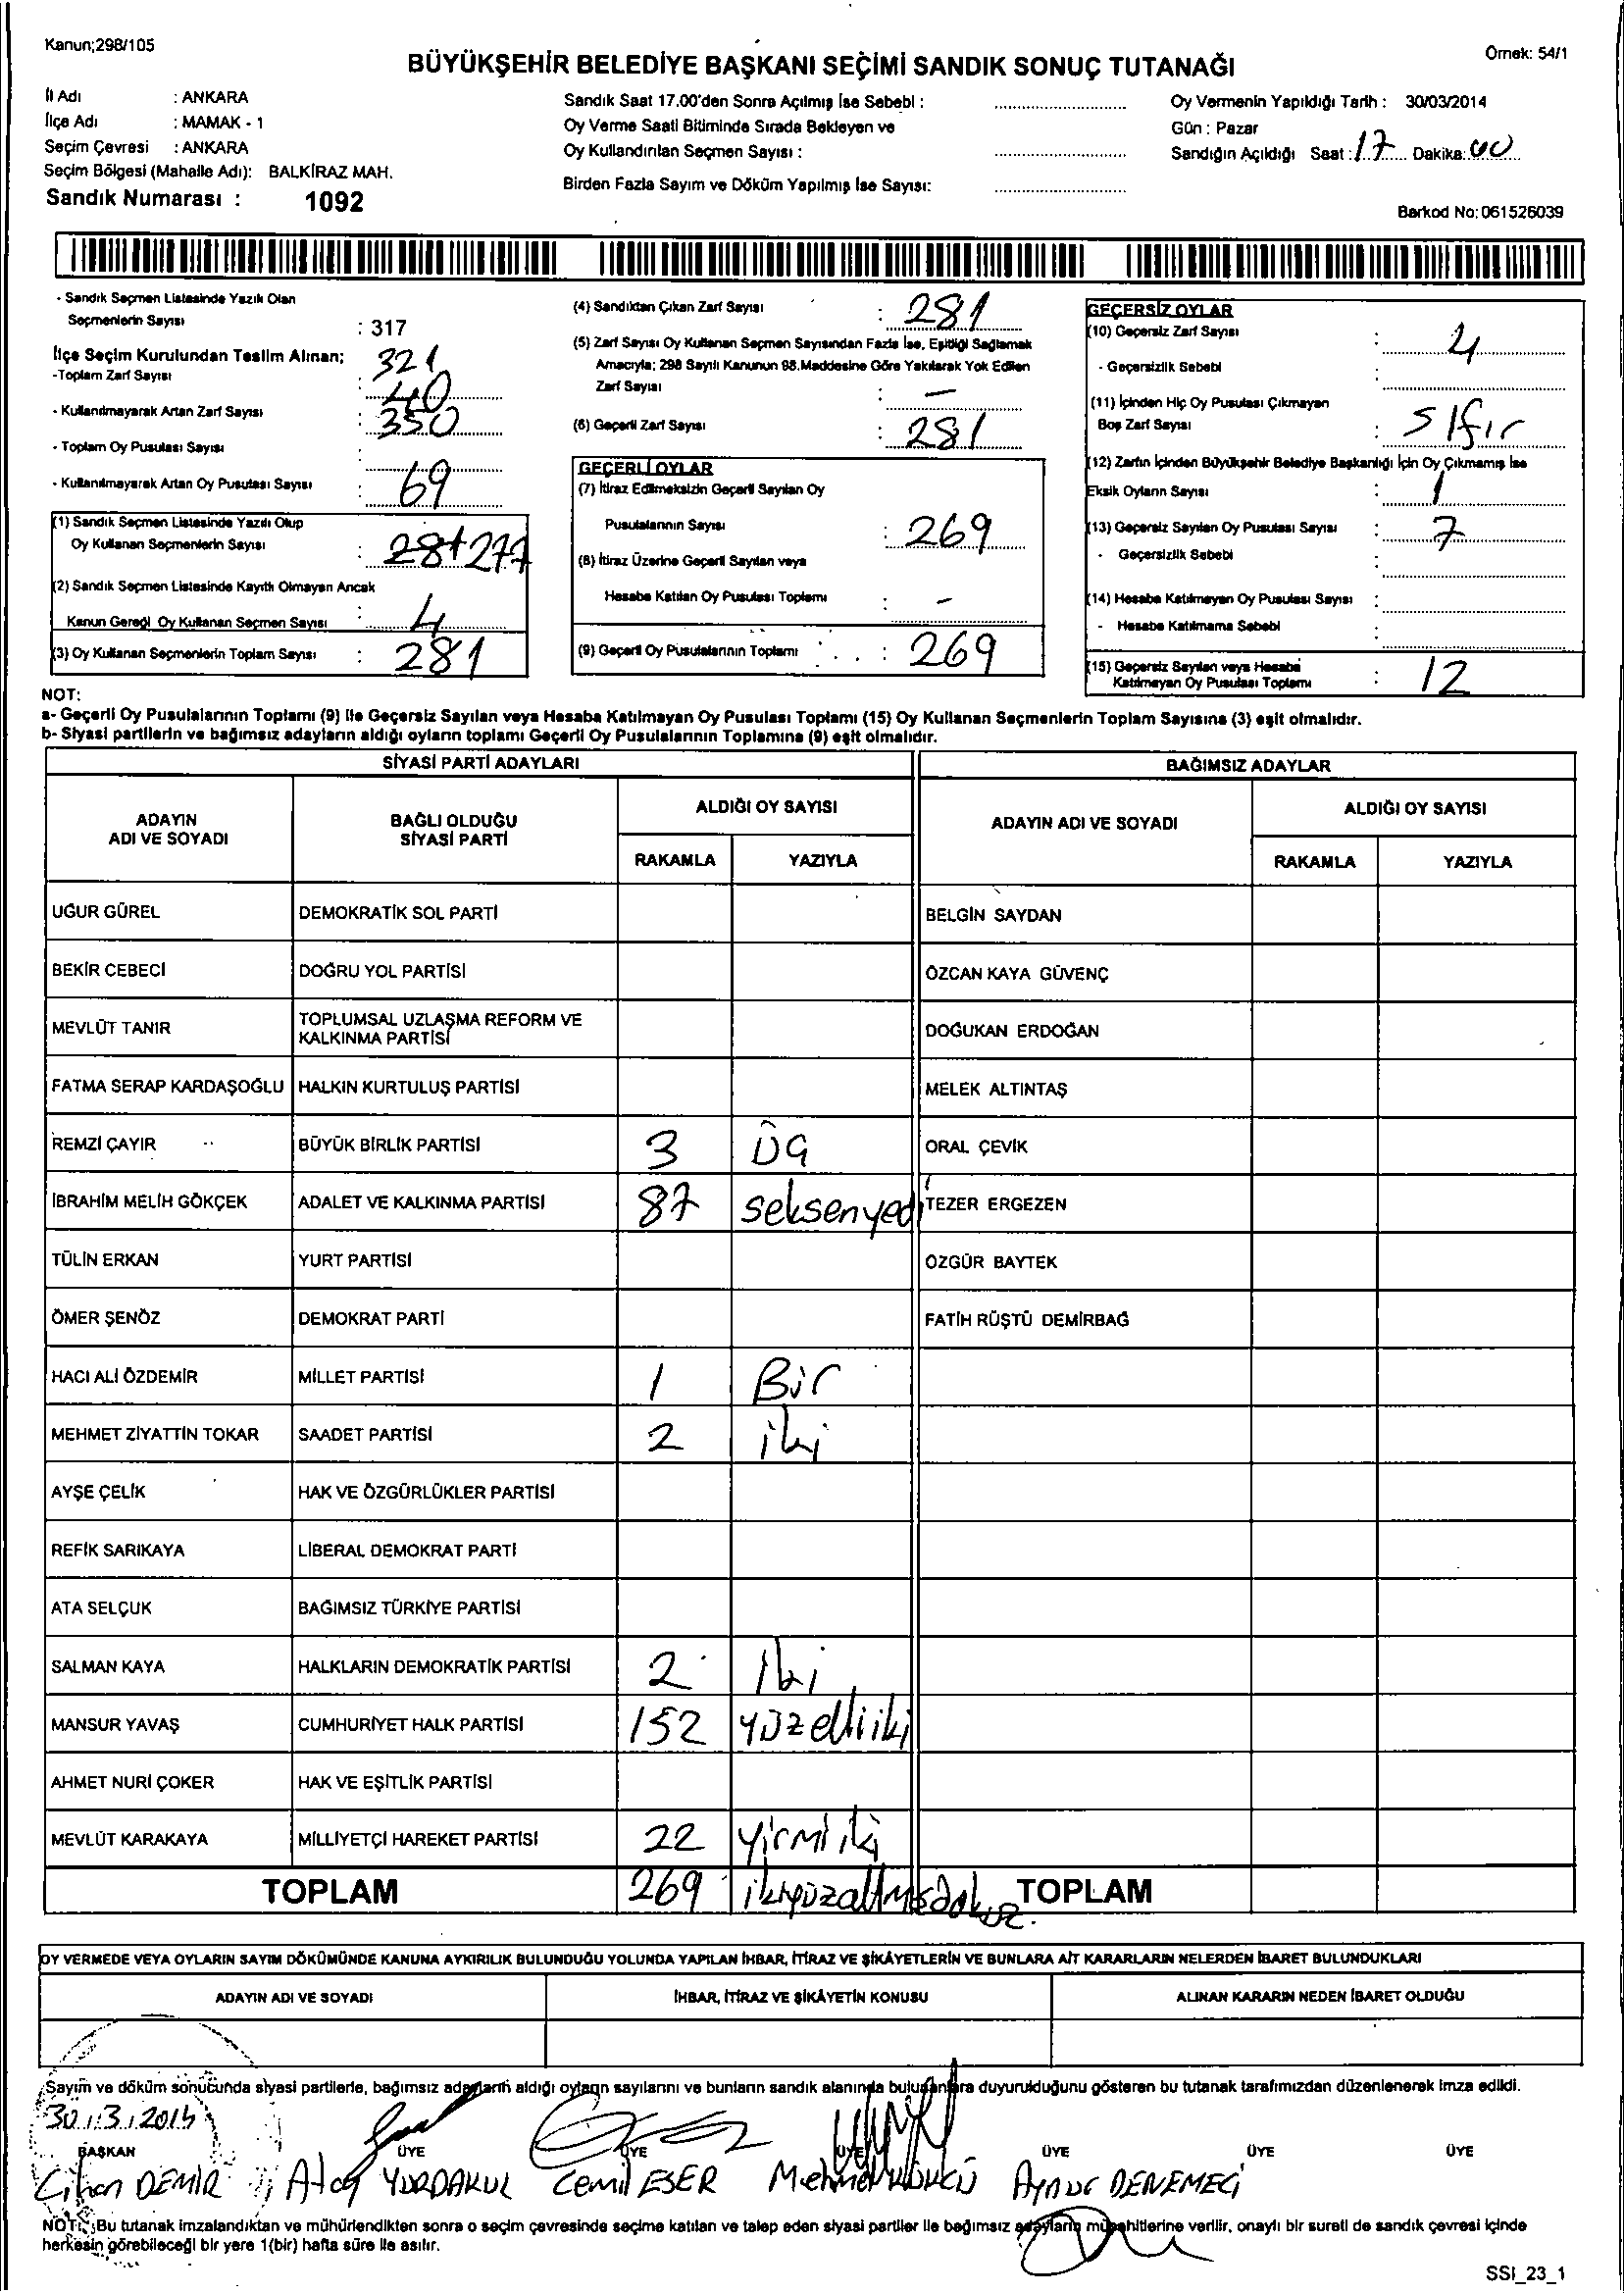 Kanun;298/105
Örnek: 54/1
BÜYÜKŞEHİR BELEDİYE BAŞKANI SEÇİMİ SANDIK SONUÇ TUTANAĞI
İl Adı : ANKARA
İlçe Adı : MAMAK - 1
Seçim Çevresi : ANKARA
Seçim Bölgesi (Mahalle Adı): BALKİRAZ MAH.
Sandık Numarası : 1092
Sandık Saat 17.00'den Sonra Açılmış İse Sebebi :
Oy Verme Saati Bitiminde Sırada Bekleyen ve
Oy Kullandırılan Seçmen Sayısı :
Birden Fazla Sayım ve Döküm Yapılmış İse Sayısı:
Oy Vermenin Yapıldığı Tarih : 30/03/2014
Gün : Pazar
Sandığın Açıldığı Saat : 17 Dakika: 00
Barkod No: 061526039
- Sandık Seçmen Listesinde Yazılı Olan
Seçmenlerin Sayısı : 317
İlçe Seçim Kurulundan Teslim Alınan;
-Toplam Zarf Sayısı : 321
- Kullanılmayarak Artan Zarf Sayısı : 40
- Toplam Oy Pusulası Sayısı 350
- Kullanılmayarak Artan Oy Pusulası Sayısı : 69
(1) Sandık Seçmen Listesinde Yazılı Olup
Oy Kullanan Seçmenlerin Sayısı : 277
(2) Sandık Seçmen Listesinde Kayıtlı Olmayan Ancak
Kanun Gereği Oy Kullanan Seçmen Sayısı : 4
(3) Oy Kullanan Seçmenlerin Toplam Sayısı : 281
(4) Sandıktan Çıkan Zarf Sayısı : 281
(5) Zarf Sayısı Oy Kullanan Seçmen Sayısından Fazla İse, Eşitliği Sağlamak
Amacıyla; 298 Sayılı Kanunun 98.Maddesine Göre Yakılarak Yok Edilen
Zarf Sayısı : -
(6) Geçerli Zarf Sayısı : 281
GEÇERLİ OYLAR
(7) İtiraz Edilmeksizin Geçerli Sayılan Oy
Pusulalarının Sayısı : 269
(8) İtiraz Üzerine Geçerli Sayılan veya
Hesaba Katılan Oy Pusulası Toplamı : -
(9) Geçerli Oy Pusulalarının Toplamı : 269
GEÇERSİZ OYLAR
(10) Geçersiz Zarf Sayısı : 4
- Geçersizlik Sebebi :
(11) İçinden Hiç Oy Pusulası Çıkmayan
Boş Zarf Sayısı : sıfır
(12) Zarfın İçinden Büyükşehir Belediye Başkanlığı İçin Oy Çıkmamış İse
Eksik Oyların Sayısı : 1
(13) Geçersiz Sayılan Oy Pusulası Sayısı : 7
- Geçersizlik Sebebi :
(14) Hesaba Katılmayan Oy Pusulası Sayısı :
- Hesaba Katılmama Sebebi :
(15) Geçersiz Sayılan veya Hesaba
Katılmayan Oy Pusulası Toplamı : 12
NOT:
a- Geçerli Oy Pusulalarının Toplamı (9) ile Geçersiz Sayılan veya Hesaba Katılmayan Oy Pusulası Toplamı (15) Oy Kullanan Seçmenlerin Toplam Sayısına (3) eşit olmalıdır.
b- Siyasi partilerin ve bağımsız adayların aldığı oyların toplamı Geçerli Oy Pusulalarının Toplamına (9) eşit olmalıdır.
SİYASİ PARTİ ADAYLARI
BAĞIMSIZ ADAYLAR
ADAYIN ADI VE SOYADI
BAĞLI OLDUĞU SİYASİ PARTİ
ALDIĞI OY SAYISI
RAKAMLA YAZIYLA
ADAYIN ADI VE SOYADI
ALDIĞI OY SAYISI
RAKAMLA YAZIYLA
UĞUR GÜREL DEMOKRATİK SOL PARTİ BELGİN SAYDAN
BEKİR CEBECİ DOĞRU YOL PARTİSİ ÖZCAN KAYA GÜVENÇ
MEVLÜT TANIR TOPLUMSAL UZLAŞMA REFORM VE KALKINMA PARTİSİ DOĞUKAN ERDOĞAN
FATMA SERAP KARDAŞOĞLU HALKIN KURTULUŞ PARTİSİ MELEK ALTINTAŞ
REMZİ ÇAYIR BÜYÜK BİRLİK PARTİSİ 3 Üç ORAL ÇEVİK
İBRAHİM MELİH GÖKÇEK ADALET VE KALKINMA PARTİSİ 87 seksenyedi TEZER ERGEZEN
TÜLİN ERKAN YURT PARTİSİ ÖZGÜR BAYTEK
ÖMER ŞENÖZ DEMOKRAT PARTİ FATİH RÜŞTÜ DEMİRBAĞ
HACI ALİ ÖZDEMİR MİLLET PARTİSİ 1 Bir
MEHMET ZİYATTİN TOKAR SAADET PARTİSİ 2 iki
AYŞE ÇELİK HAK VE ÖZGÜRLÜKLER PARTİSİ
REFİK SARIKAYA LİBERAL DEMOKRAT PARTİ
ATA SELÇUK BAĞIMSIZ TÜRKİYE PARTİSİ
SALMAN KAYA HALKLARIN DEMOKRATİK PARTİSİ 2 iki
MANSUR YAVAŞ CUMHURİYET HALK PARTİSİ 152 yüzelliiki
AHMET NURİ ÇOKER HAK VE EŞİTLİK PARTİSİ
MEVLÜT KARAKAYA MİLLİYETÇİ HAREKET PARTİSİ 22 yirmi iki
TOPLAM 269 ikiyüzaltmışdokuz. TOPLAM
OY VERMEDE VEYA OYLARIN SAYIM DÖKÜMÜNDE KANUNA AYKIRILIK BULUNDUĞU YOLUNDA YAPILAN İHBAR, İTİRAZ VE ŞİKÂYETLERİN VE BUNLARA AİT KARARLARIN NELERDEN İBARET BULUNDUKLARI
ADAYIN ADI VE SOYADI İHBAR, İTİRAZ VE ŞİKÂYETİN KONUSU ALINAN KARARIN NEDEN İBARET OLDUĞU
Sayım ve döküm sonucunda siyasi partilerle, bağımsız adayların aldığı oyların sayılarını ve bunların sandık alanında bulunanlara duyurulduğunu gösteren bu tutanak tarafımızdan düzenlenerek imza edildi.
30.3.2014
BAŞKAN ÜYE ÜYE ÜYE ÜYE ÜYE ÜYE
Cihan DEMİR Atag YURDAKUL Cemil ESER Mehmet Aynur DENEMECİ
NOT: Bu tutanak imzalandıktan ve mühürlendikten sonra o seçim çevresinde seçime katılan ve talep eden siyasi partiler ile bağımsız adayların müşahitlerine verilir, onaylı bir sureti de sandık çevresi içinde
herkesin görebileceği bir yere 1(bir) hafta süre ile asılır.
SSI_23_1